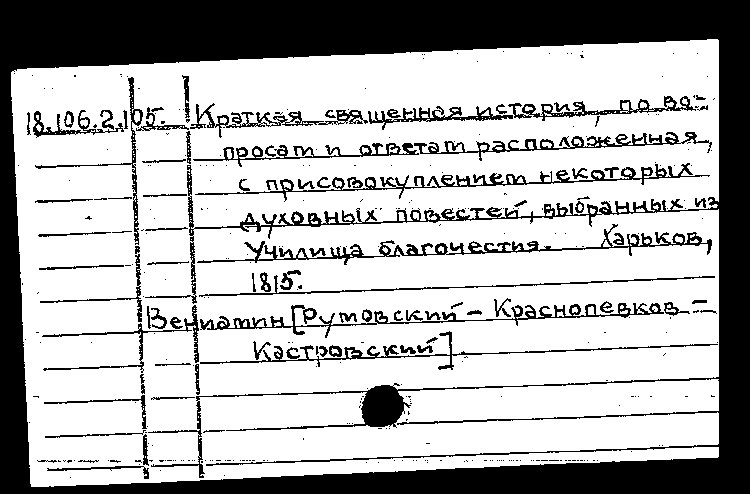 18.106.2.105. Краткая священная история, по во-
просам и ответам расположенная,
с присовокуплением некоторых
духовных повестей, выбранных из
Училища благочестия. Харьков,
1815.
Вениамин [Румовский - Краснопевков -
Костровский].